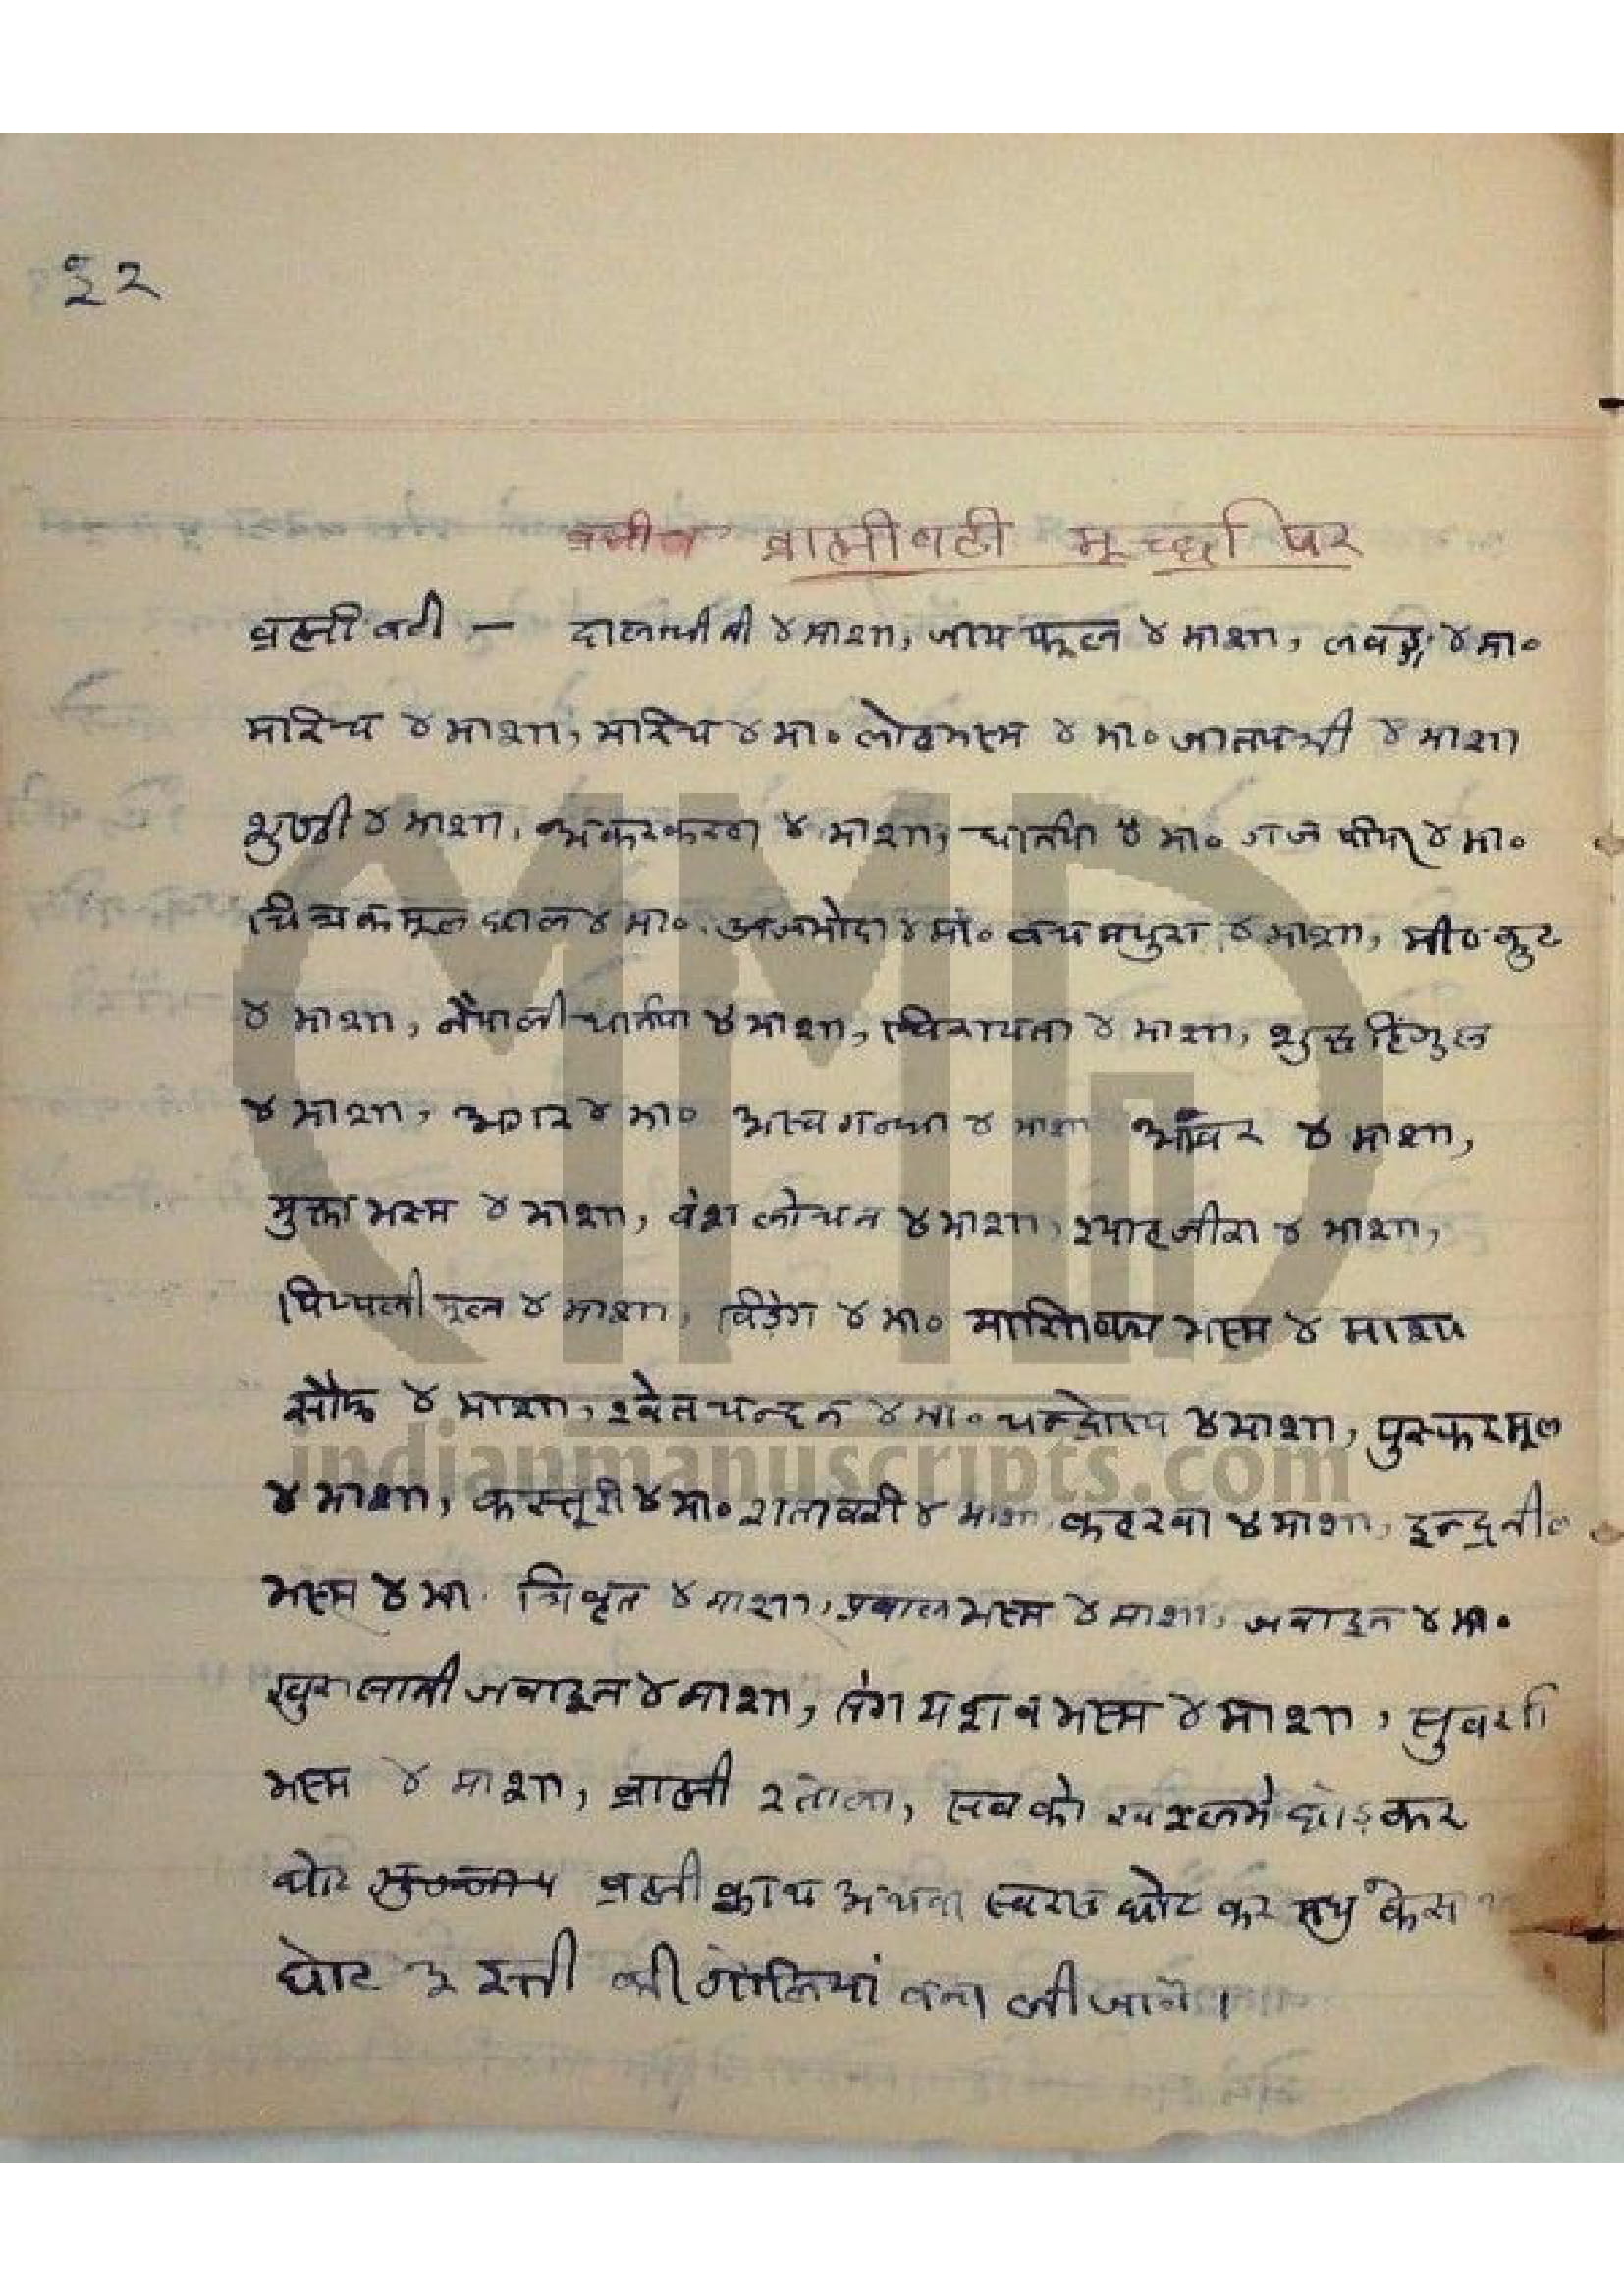 ३२
ब्राह्मीवटी मूर्च्छा पर
ब्रह्मी वटी — दालचीनी ४ माशा, जायफूल ४ माशा, लवङ्ग ४ मा॰
मारिच ४ माशा, मारिच ४ मा॰ लोहभस्म ४ मा॰ जातपत्री ४ माशा
शुण्ठी ४ माशा, अकरकरहा ४ माशा, ४ मा॰ गज पीपर ४ मा॰
चित्रकमूल छाल ४ मा॰ अजमोदा ४ मा॰ वच मधुरा ४ माशा, मीठ कुट
४ माशा, नैपाली ४ माशा, चिरायता ४ माशा, शुद्ध हिंगुल
४ माशा, अगर ४ मा॰ अस्वगन्धा ४ माशा ४ माशा,
मुक्ता भस्म ४ माशा, वंश लोचन ४ माशा, स्याहजीरा ४ माशा,
पिप्पली मूल ४ माशा, विडंग ४ मा॰ माणिक्य भस्म ४ माशा
सौंफ ४ माशा, श्वेत चन्दन ४ मा॰ चन्द्रोदय ४ माशा, पुस्करमूल
४ माशा, कस्तूरी ४ मा॰ शतावरी ४ माशा, कहरवा ४ माशा, इन्द्रनील
भस्म ४ मा॰ त्रिवृत ४ माशा, प्रवाल भस्म ४ माशा, जवाइन ४ मा॰
खुरासानी जवाइन ४ माशा, संग यशव भस्म ४ माशा, सुवर्ण
भस्म ४ माशा, ब्राह्मी २ तोला, सब को खरलमे छोड़कर
घोट ब्रह्मी क्वाथ अथवा स्वरस घोट कर
घोट ३ रत्ती की गोलियां बना ली जावे।
MMG
indianmanuscripts.com